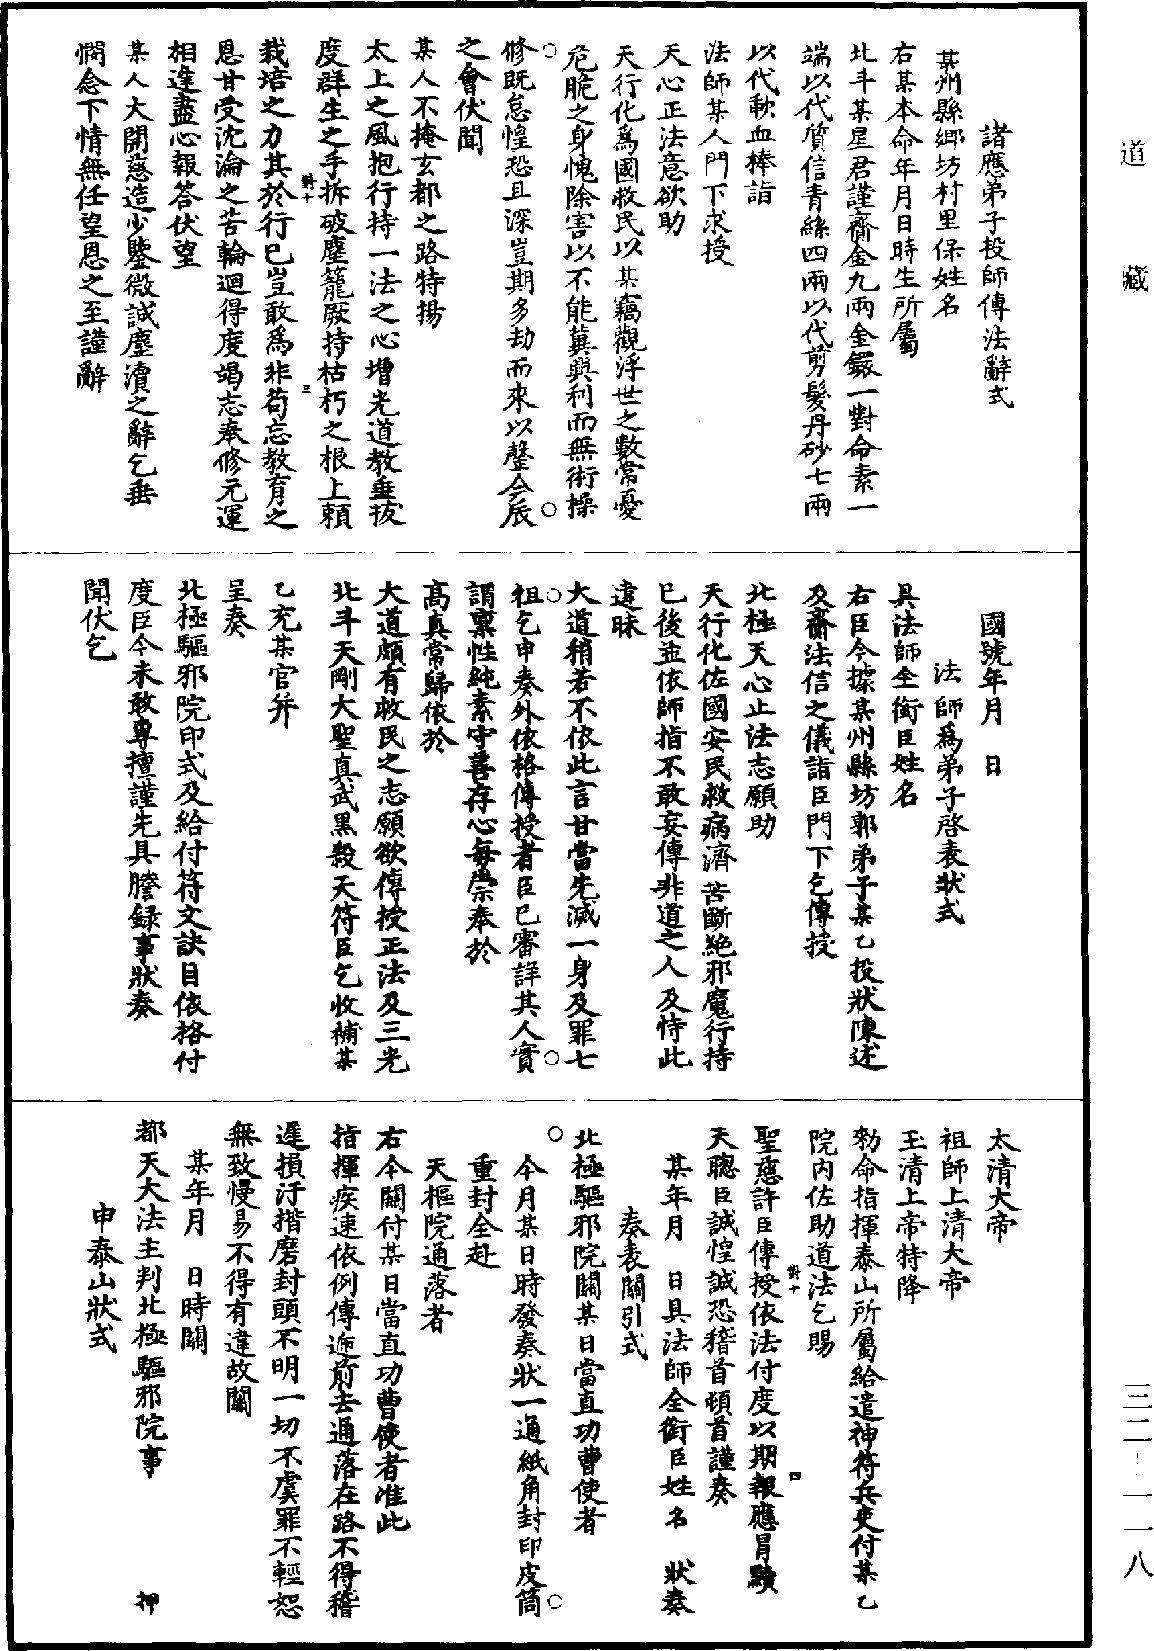 道藏
諸應弟子投師傳法辭式
某州縣鄉坊村里保姓名
右某本命年月日時生所屬
北斗某星君謹齎金九兩金鐶一對命素一
端以代質信青絲四兩以代剪髮丹砂七兩
以代歃血捧詣
法師某人門下求授
天心正法意欲助
天行化爲國救民以某竊觀浮世之數常憂
危脆之身愧除害以不能冀興利而無術操
修既怠惶恐且深豈期多劫而來以罄今辰
之會伏聞
某人不掩玄都之路特揚
太上之風抱行持一法之心增光道教垂拔
度群生之手拆破塵籠厥持枯朽之根上賴
栽培之力其於行已豈敢爲非苟忘教育之
恩甘受沈淪之苦輪迴得度竭志奉修元運
相逢盡心報答伏望
某人大開慈造少鑒微誠塵瀆之辭乞垂
憫念下情無任望恩之至謹辭
國號年月 日
法師爲弟子啓表狀式
具法師全銜臣姓名
右臣今據某州縣坊郭弟子某乙投狀陳述
及齎法信之儀詣臣門下乞傳授
北極天心正法志願助
天行化佐國安民救病濟苦斷絶邪魔行持
已後並依師指不敢妄傳非道之人及恃此
違昧
大道稍若不依此言甘當先滅一身及罪七
祖乞申奏外依格傳授者臣已審詳其人實
謂稟性純素守善存心每崇奉於
高真常歸依於
大道頗有救民之志願欲傳授正法及三光
北斗天剛大聖真武黑殺天符臣乞收補某
乙充某官并
呈奏
北極驅邪院印式及給付符文訣目依格付
度臣今未敢專擅謹先具謄録事狀奏
聞伏乞
太清大帝
祖師上清大帝
玉清上帝特降
勑命指揮泰山所屬給遣神符兵吏付某乙
院内佐助道法乞賜
聖慈許臣傳授依法付度以期報應冒黷
天聰臣誠惶誠恐稽首頓首謹奏
某年月 日具法師全銜臣姓名 狀奏
奏表關引式
北極驅邪院關某日當直功曹使者
今月某日時發奏狀一通紙角封印皮筒
重封全赴
天樞院通落者
右今關付某日當直功曹使者准此
指揮疾速依例傳遞前去通落在路不得稽
遲損汙揩磨封頭不明一切不虞罪不輕恕
無致慢易不得有違故關
某年月 日時關
都天大法主判北極驅邪院事 押
申泰山狀式
三二—一一八